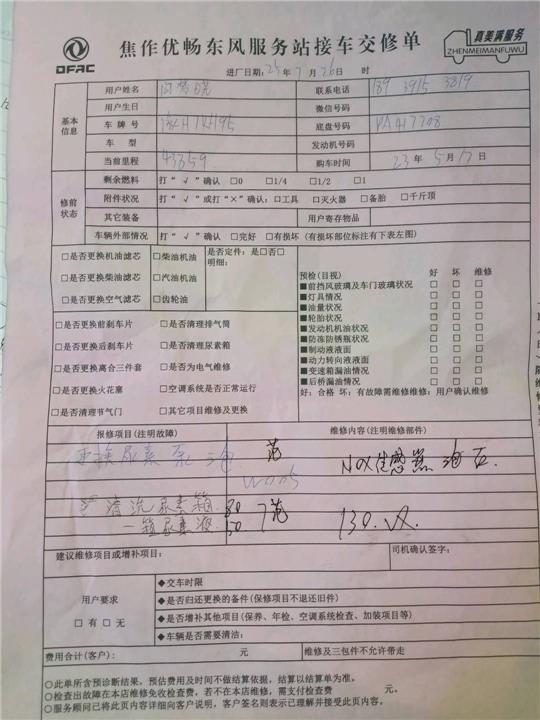 DFAC
焦作优畅东风服务站接车交修单
真美满服务
ZHENMEIMANFUWU
进厂日期：25年7月26日 时
基本信息
用户姓名 联系电话 189 3915 3819
用户生日 微信号码
车牌号 底盘号码 PA417708
车型 发动机号码
当前里程 43359 购车时间 23年5月17日
修前状态
剩余燃料 打“√”确认 □0 □1/4 □1/2 □1
附件状况 打“√”或打“×”确认：□工具 □灭火器 □备胎 □千斤顶
其它装备 用户寄存物品
车辆外部情况 打“√”确认 □完好 □有损坏（有损坏部位标注有下表左图）
□是否更换机油滤芯 □柴油机油 是否定件：是□否□
明细：
□是否更换柴油滤芯 □汽油机油
□是否更换空气滤芯 □齿轮油
□是否更换前刹车片 □是否清理排气筒
□是否更换后刹车片 □是否清理尿素箱
□是否更换离合三件套 □是否为电气维修
□是否更换火花塞 □空调系统是否正常运行
□是否清理节气门 □其它项目维修及更换
预检(目视) 好 坏 维修
■前挡风玻璃及车门玻璃状况 □ □ □
■灯具情况 □ □ □
■油量状况 □ □ □
■轮胎状况 □ □ □
■发动机机油状况 □ □ □
■防冻防锈瓶状况 □ □ □
■制动液液面 □ □ □
■动力转向液液面 □ □ □
■变速箱漏油情况 □ □ □
■后桥漏油情况 □ □ □
好：合格 坏：有故障需维修维修：用户确认维修
报修项目(注明故障) 维修内容(注明维修部件)
更换尿素泵 NOX传感器
清洗尿素箱 80
一箱尿素液 50 130.
建议维修项目或增补项目： 司机确认签字：
用户要求
□有 □无
◆交车时限
◆是否归还更换的备件(保修项目不退还旧件)
◆是否增补其他项目(保养、年检、空调系统检查、加装项目等)
◆车辆是否需要清洁：
费用合计(客户)： 元 维修及三包件不允许带走
○此单所含预诊断结果，预估费用及时间不做结算依据，结算以结算单为准。
○检查出故障在本店维修免收检查费，若不在本店维修，需支付检查费 元。
○服务顾问已将此页内容详细向客户说明，客户签名则表示已理解并接受此页内容。